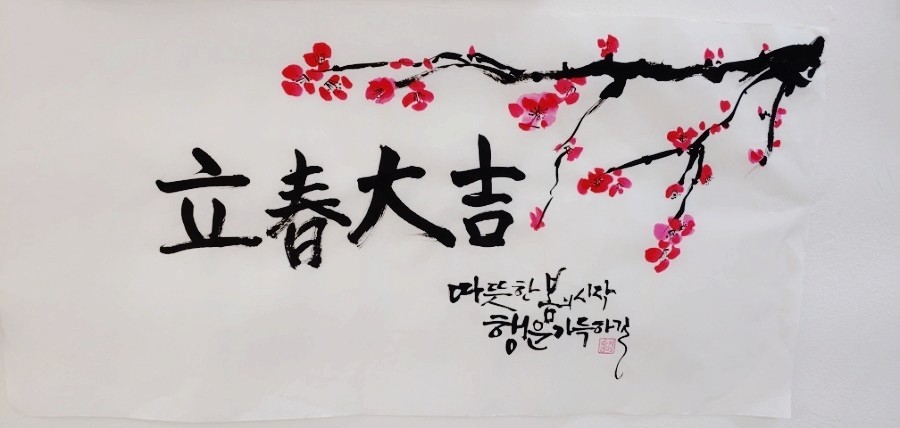 立春大吉
따뜻한 봄의 시작
행운 가득하길